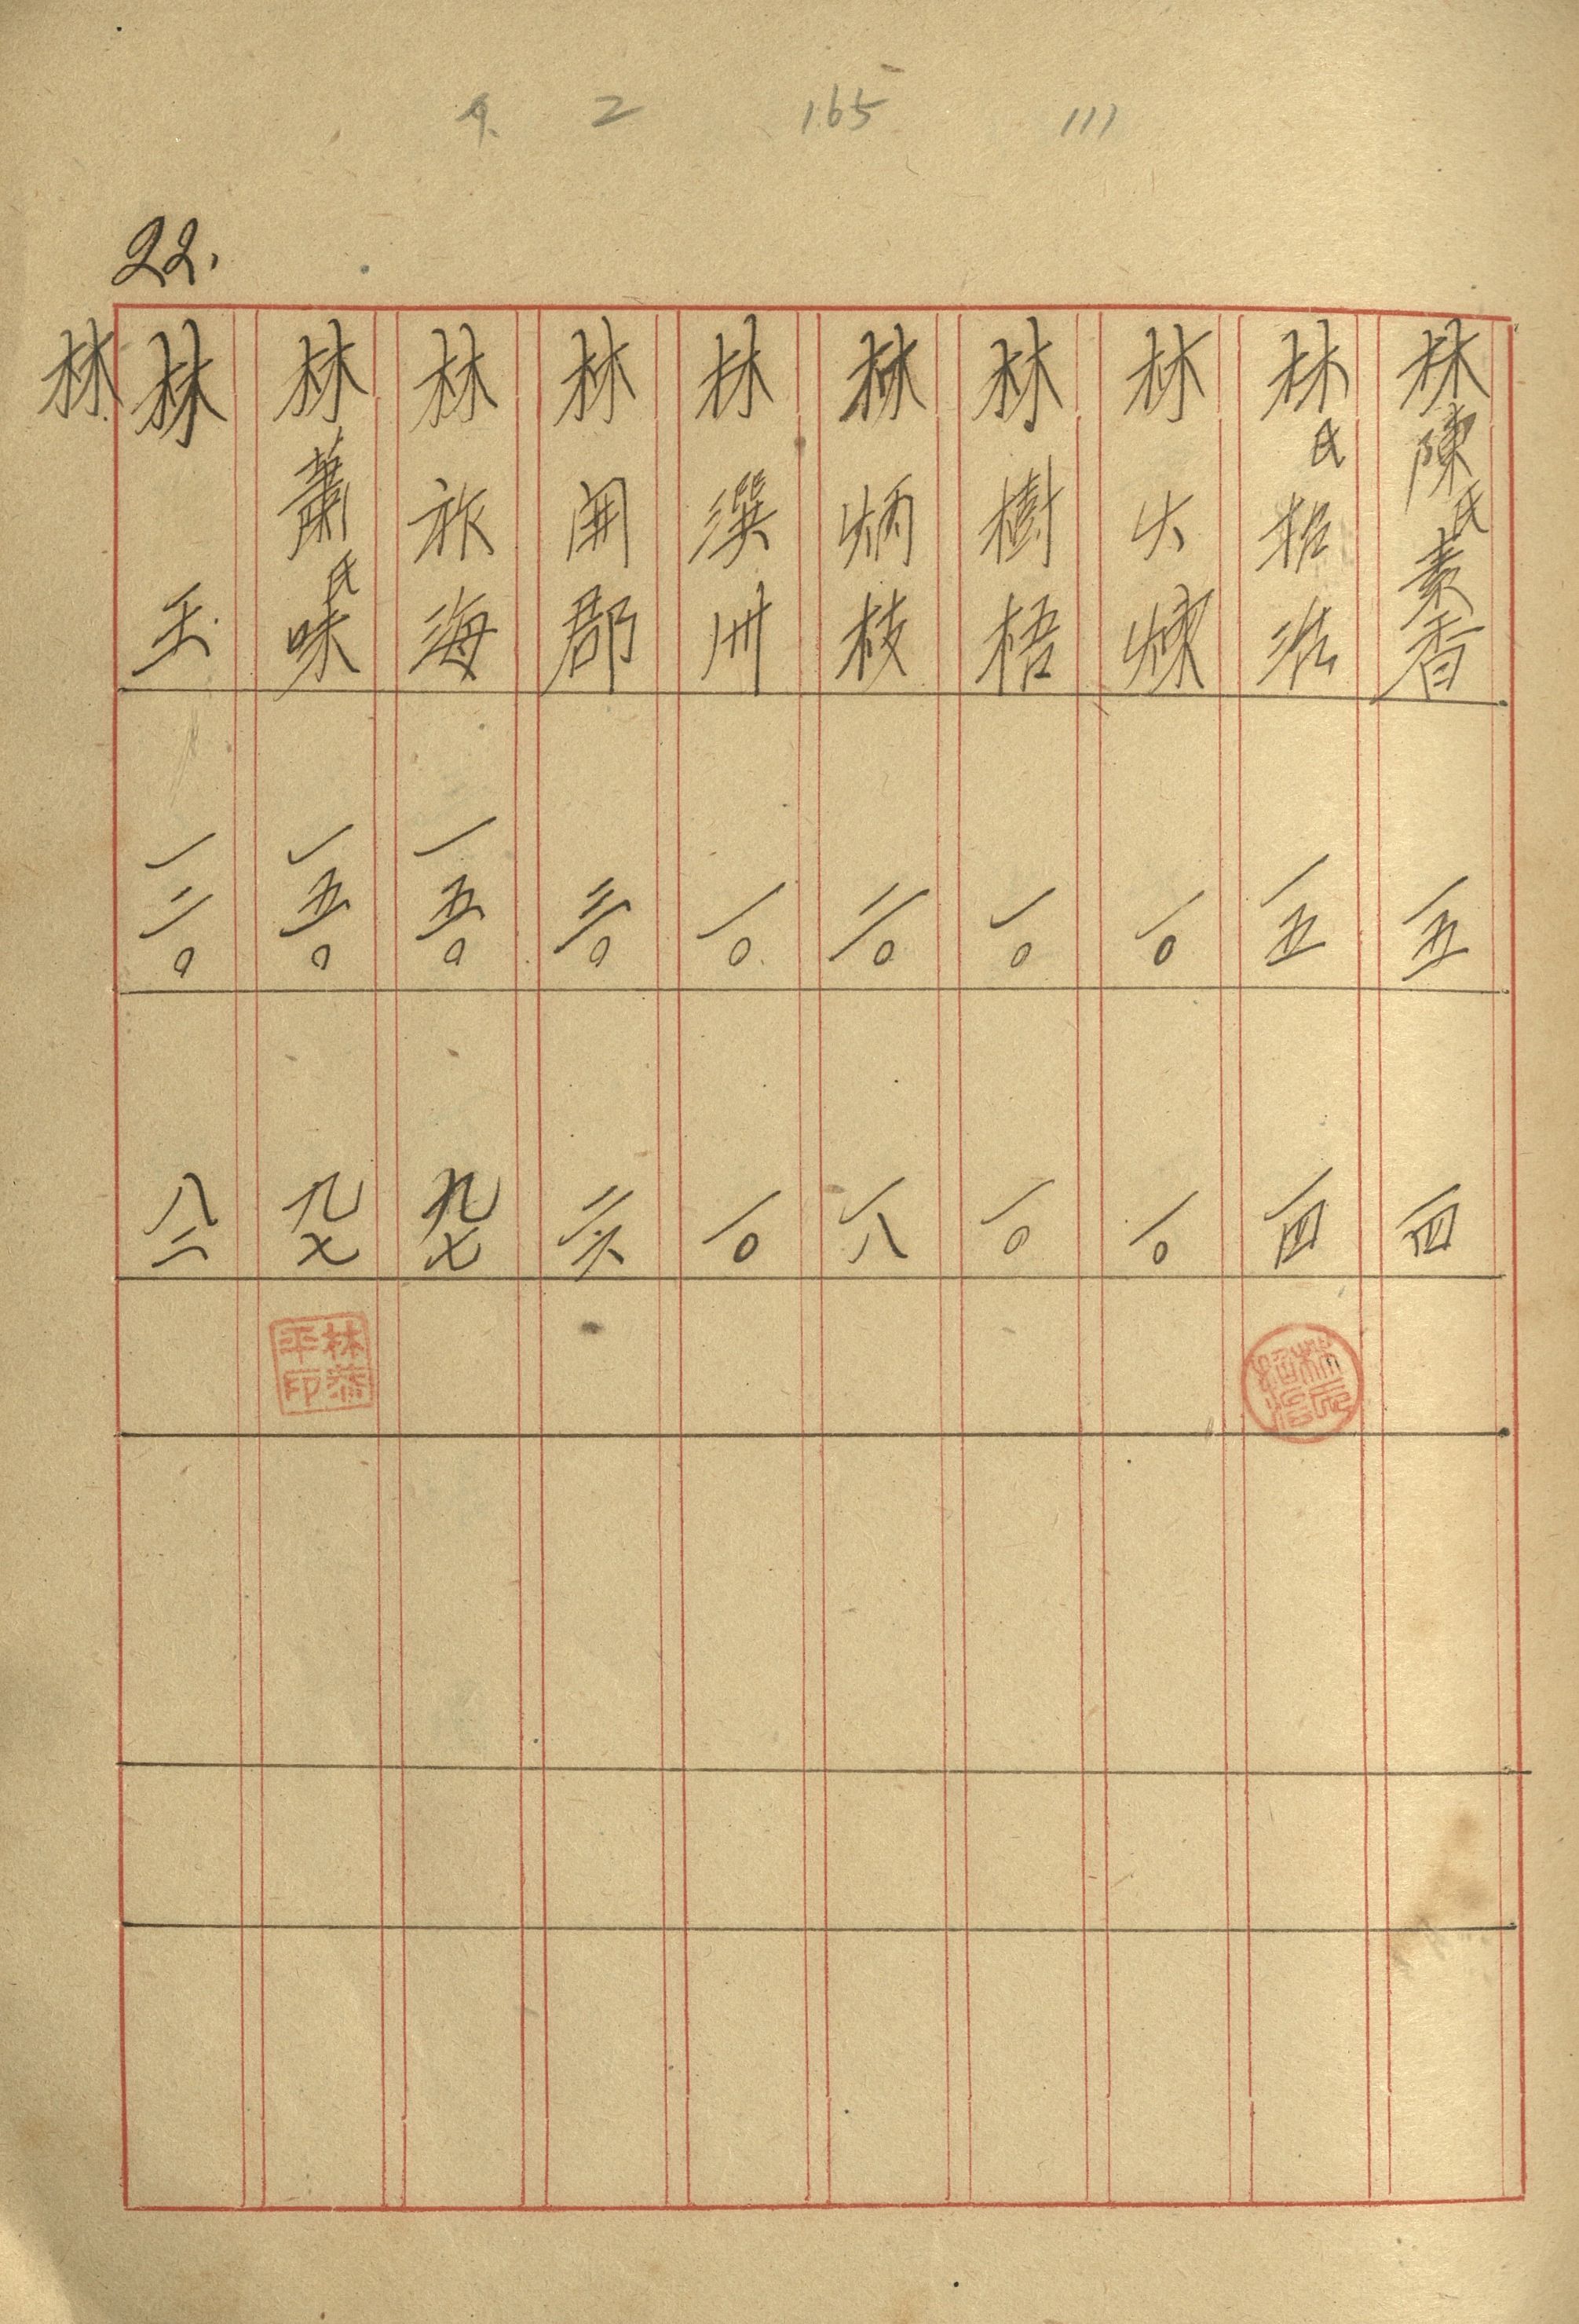 2 165 111
22.
林陳氏素香 一五 一四
林氏招治 一五 一四
林火煉 一〇 一〇
林樹梧 一〇 一〇
林炳枝 二〇 一八
林漢洲 一〇 一〇
林開郡 三〇 二六
林祚海 一五〇 九七
林蕭氏味 一五〇 九七
林玉 一二〇 八二
林
林
平印